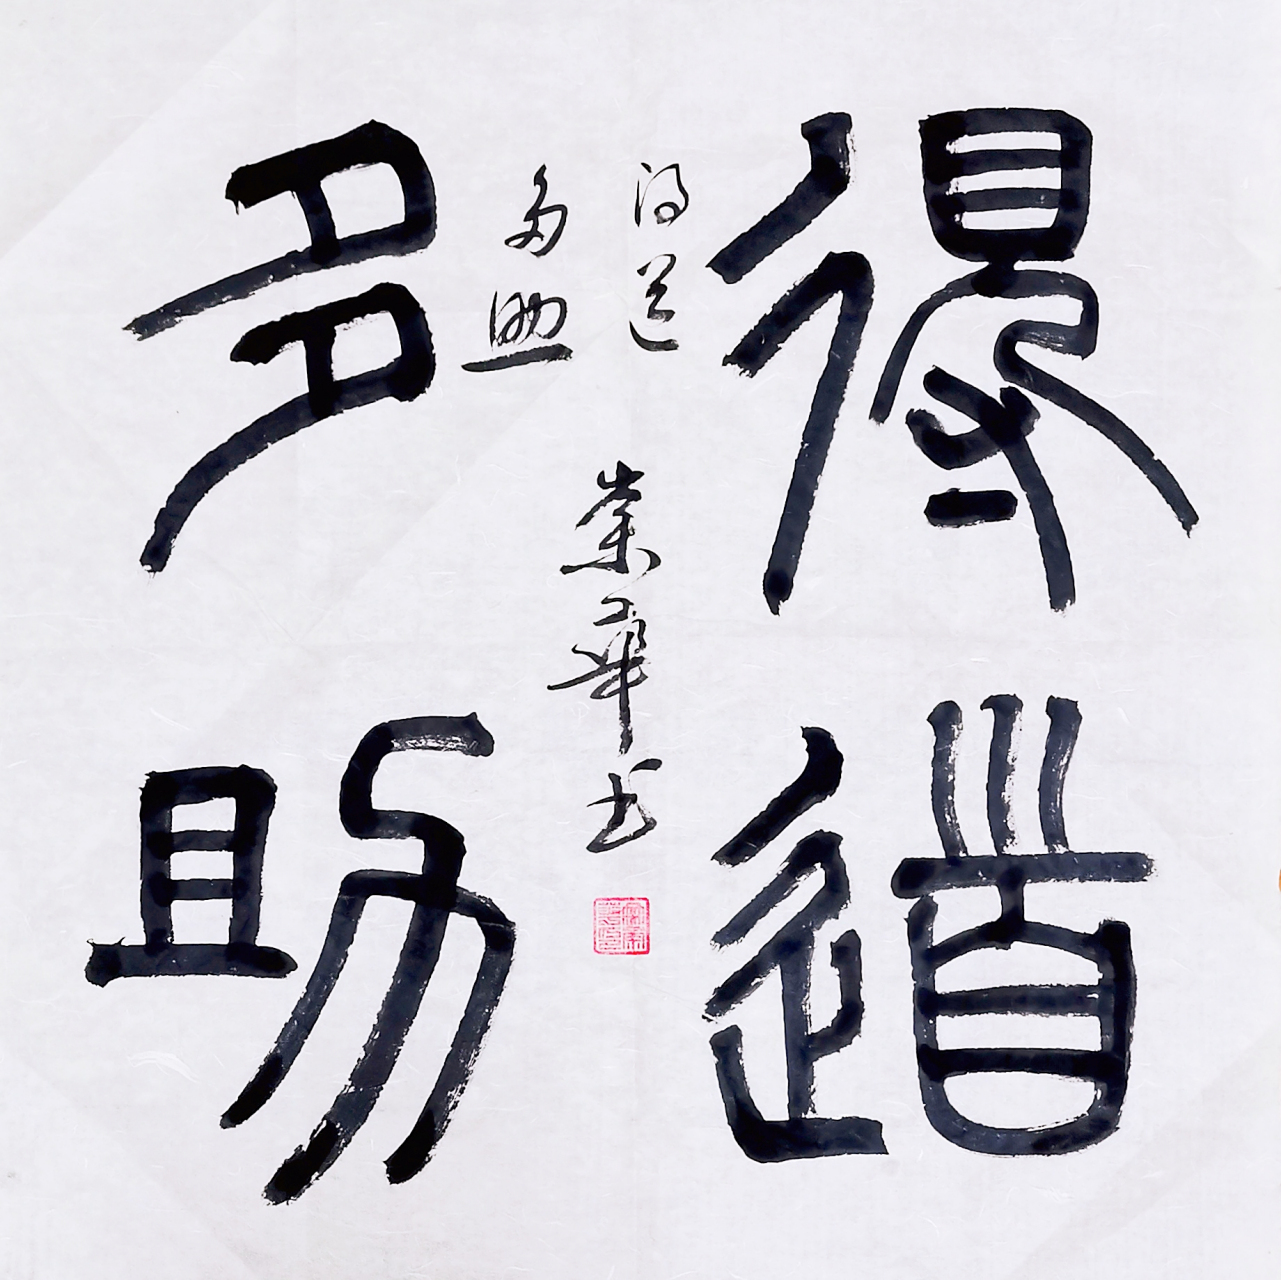 得道
多助
得道
多助
崇华书